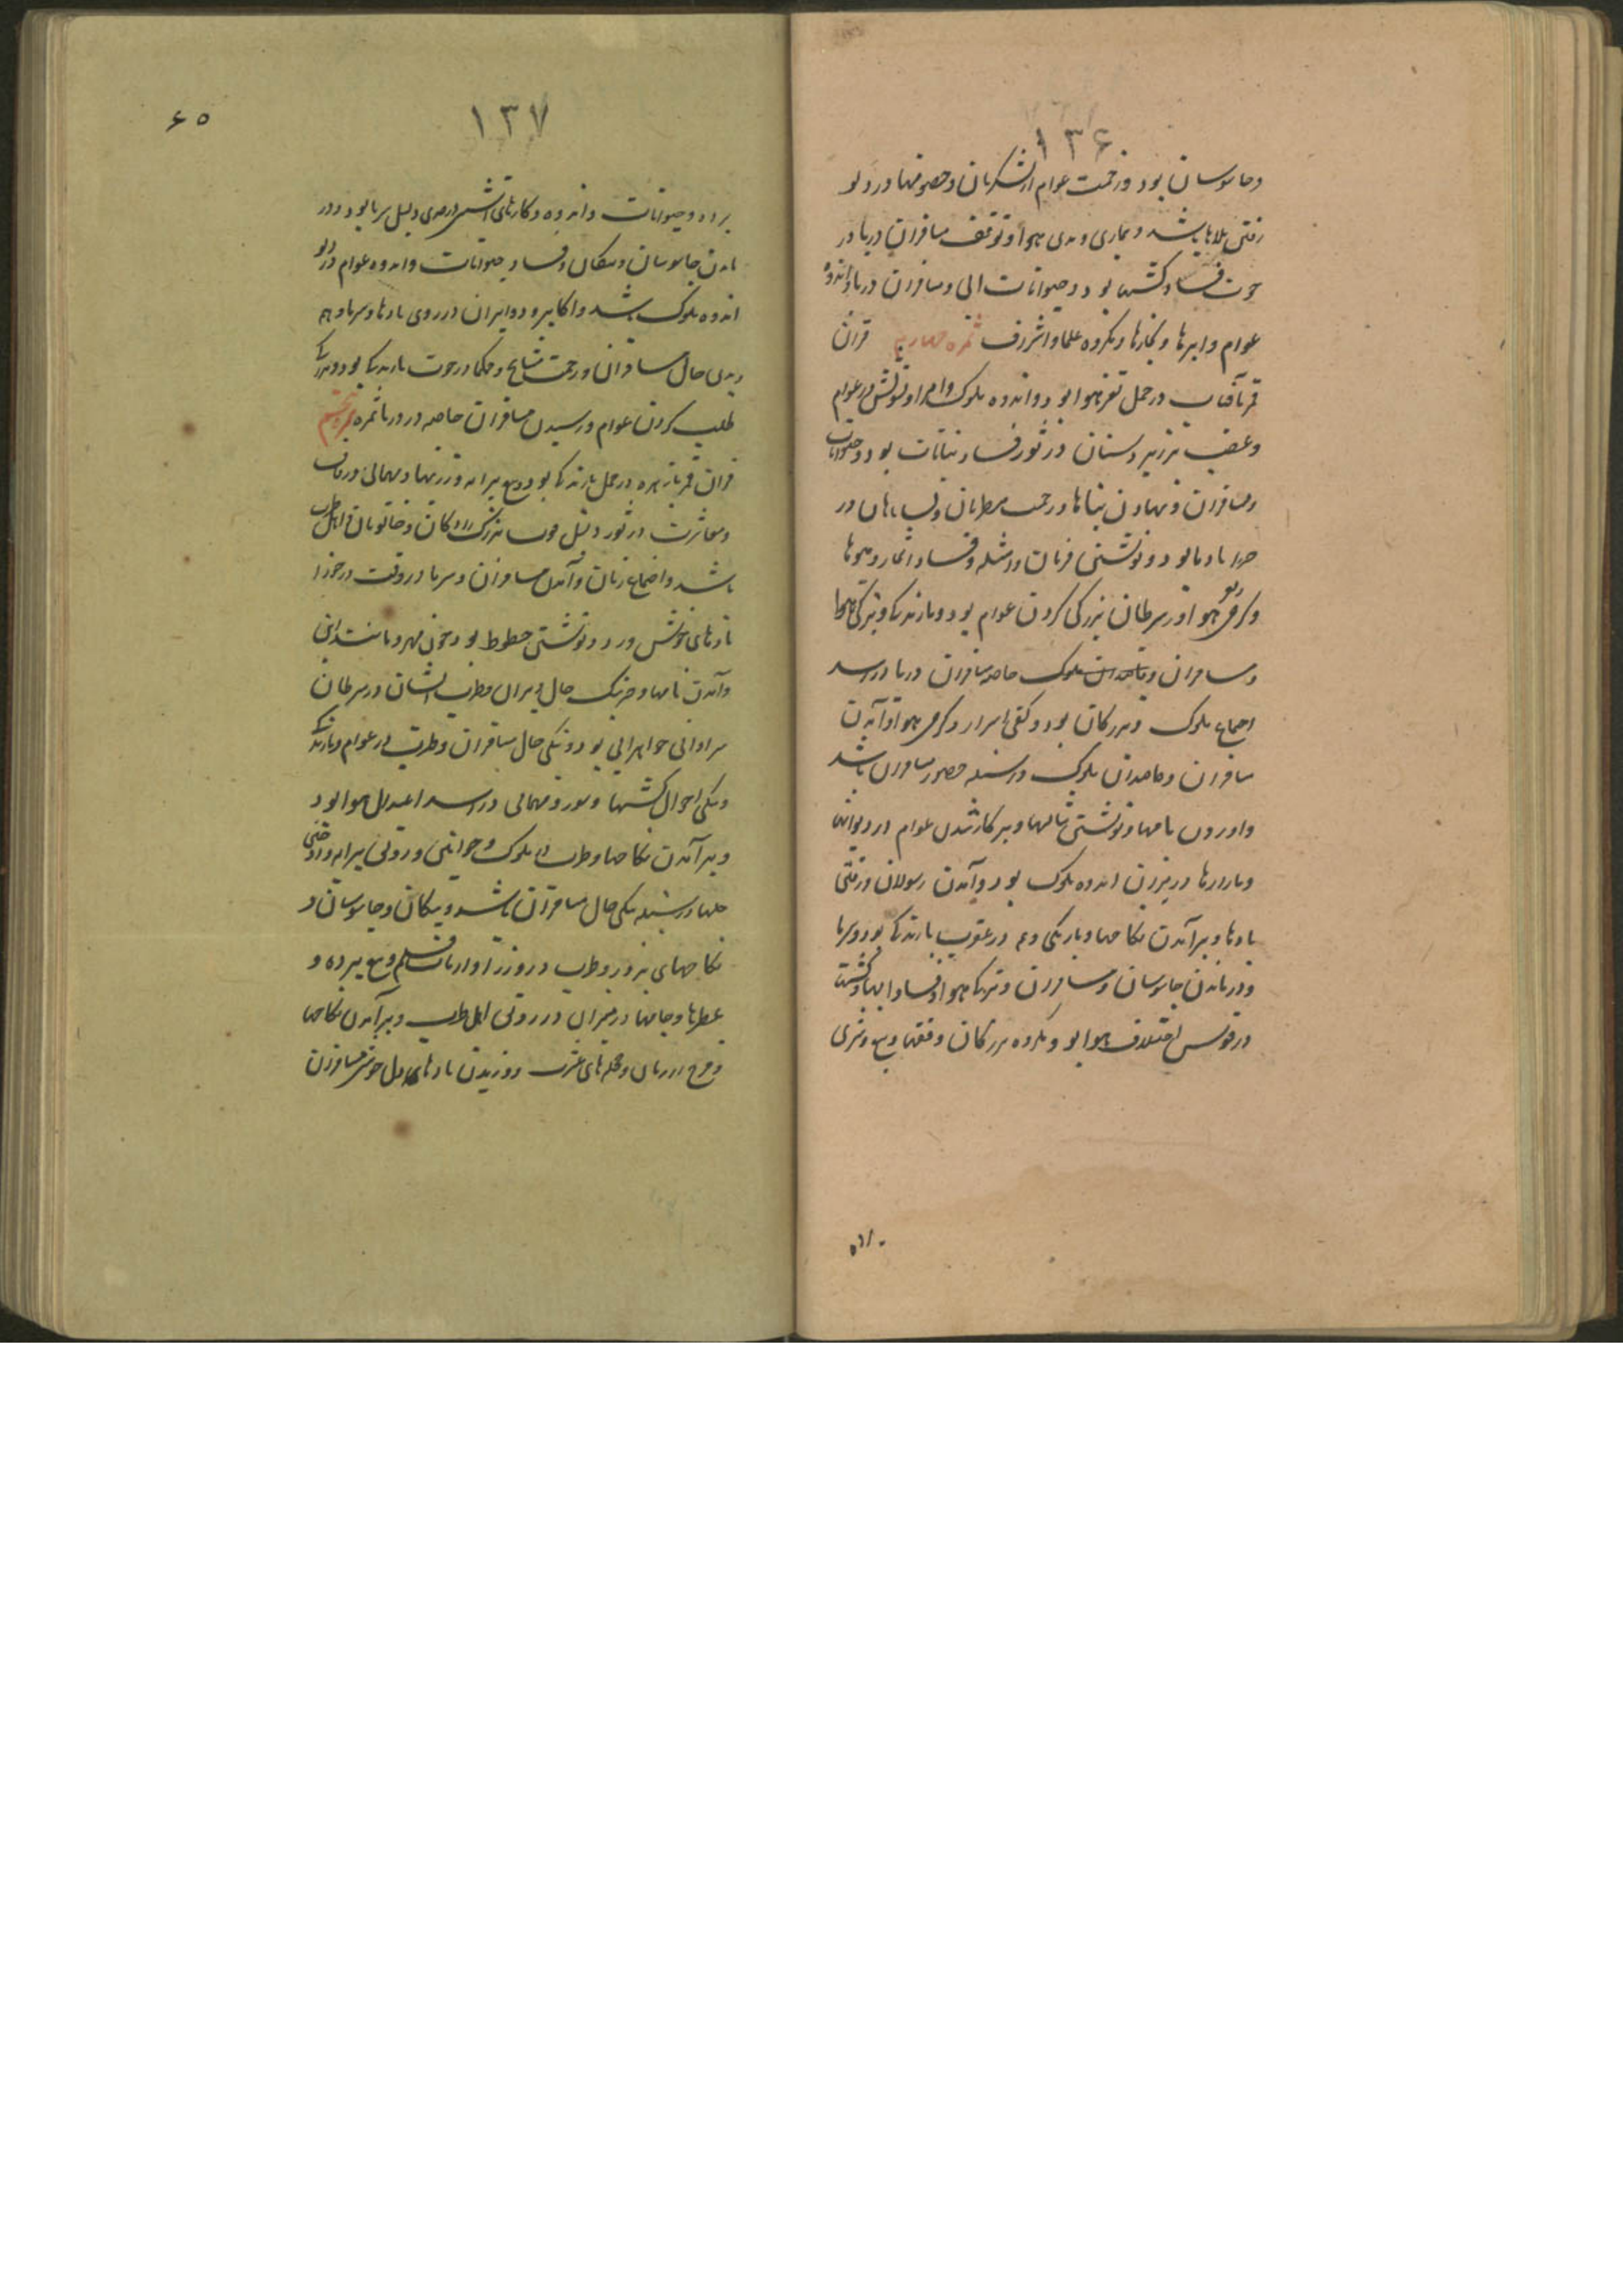 ١٣۶
وجاسوسان بود و زحمت عوام از لشکریان وخصومتها و در دلو
رفتن بلاها باشد و بیماری وبدی هوا و توقف مسافران دریا و در
حوت فساد کشتیها بود و حیوانات آبی و مسافران دریا واندوه
عوام وابرها و بخارها ومکروه علما و اشراف ثمره چهارم قران
قمر بآفتاب در حمل تغیر هوا بود و اندوه ملوک و امرا و تشویش در عوام
وغضب بر زیر دستان در ثور فساد نباتات بود وحیوانات
ومسافران و نهادن بناها و زحمت مطربان و
بادها بود و نوشتن فرمان و امثله و فساد اثمار ومیوها
وگرمی هوا و در سرطان بزرگی کردن عوام بود و بارندگی وتیرگی هوا
ومسافران وقاصدان ملوک خاصه مسافران دریا در اسد
اجتماع ملوک وبزرکان بود و کفتن اسرار و گرمی هوا و آمدن
مسافران وقاصدان ملوک در سنبله حضور مسافران باشد
واوردن نامها و نوشتن مثالها وبر کار شدن عوام در دیوانها
وبازارها در میزان اندوه ملوک بود وآمدن رسولان و رفتن
بادها وبرآمدن نکاحها وباریکی و در عقرب بارندگی بود وسرما
و درماندن جاسوسان ومسافران وتیرگی هوا وفساد ابها وکشت
در قوس اختلاف هوا بود ومکروه بزرکان وفقها وبیع وشری
١٣٧
۶٥
برده وحیوانات واندوه وکارهای آتش در جدی دلیل سرما بود و در
ماندن جاسوسان وپیکان وفساد حیوانات واندوه عوام در دلو
اندوه ملوک باشد واکابر و وزیران و بادها وسرما و
وبدی حال مسافران و زحمت مشایخ وحکما و در حوت بارندگی بود و
طلب کردن عوام و رسیدن مسافران خاصه در دریا ثمره پنجم
قران قمر با زهره در حمل بارندگی بود وبیع پیرایه و زینتها ومهمانی و زنان
ومعاشرت در ثور دلیل بزرک زادکان وخاتونان و اهل طرب
باشد و اجتماع زنان و آمدن مسافران وسرما در وقت در جوزا
بادهای خوش و زد ونوشتن خطوط بود چون مهر و مانند این
وآمدن نامها ونیک حال دبیران وطرب ایشان در سرطان
فراوانی جواهر آبی بود ونیکی حال مسافران وطرب در عوام وبارندگی
ونیکی احوال کشتیها وسور ومهمانی در اسد اعتدال هوا بود
وبرآمدن نکاحها وطرب ملوک وخواتین و رونق پیرایه و
حلیها در سنبله نیکی حال مسافران باشد وپیکان وجاسوسان و
نکاحهای پر زور وطرب در وزرا و ارباب قلم وبیع برده و
عطرها وجامها در میزان رونق اهل طرب وبرآمدن نکاحها
وفرح در زنان ومجلسهای عشرت و وزیدن بادهای معتدل خوش مسافران